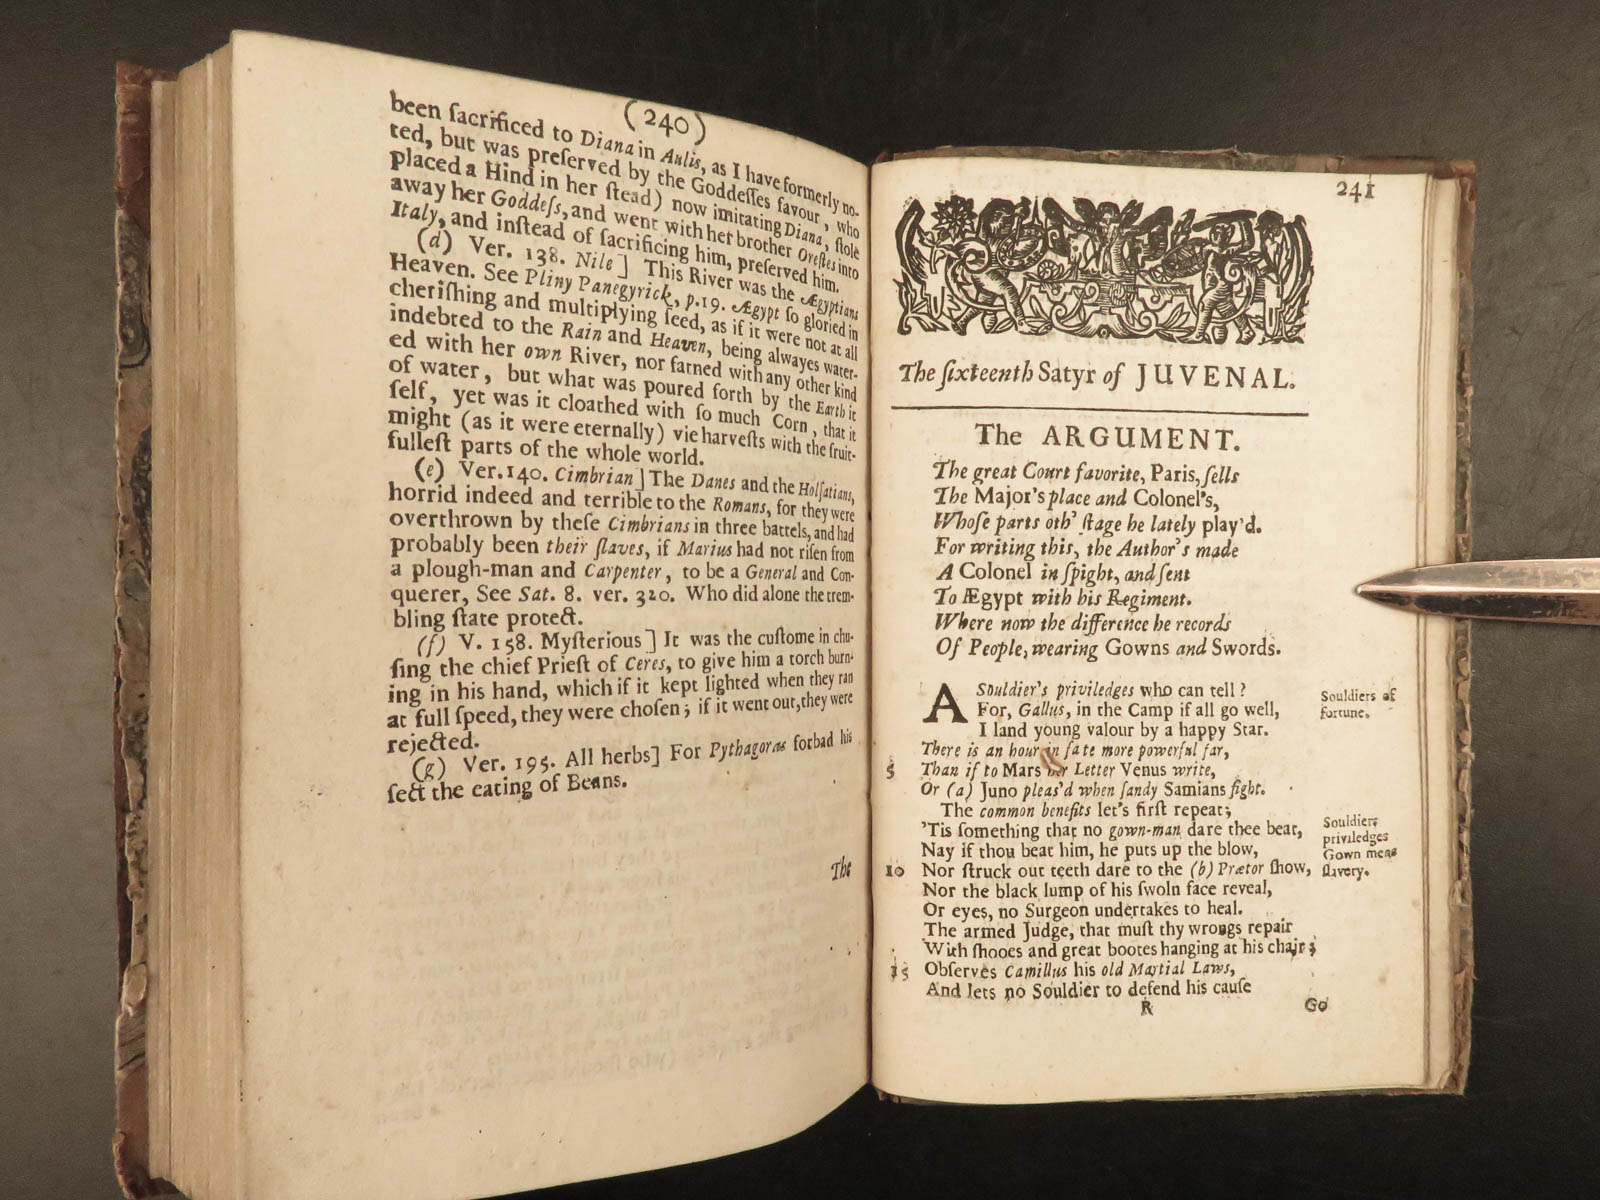 (240)
been ſacrificed to Diana in Aulis, as I have formerly no-
ted, but was preſerved by the Goddeſſes favour, who
placed a Hind in her ſtead) now imitating Diana, ſtole
away her Goddeſs, and went with her brother Oreſtes into
Italy, and inſtead of ſacrificing him, preſerved him.
(d) Ver. 138. Nile] This River was the Ægyptians
Heaven. See Pliny Panegyrick, p.19. Ægypt ſo gloried in
cheriſhing and multiplying ſeed, as if it were not at all
indebted to the Rain and Heaven, being alwayes water-
ed with her own River, nor fatned with any other kind
of water, but what was poured forth by the Earth it
ſelf, yet was it cloathed with ſo much Corn, that it
might (as it were eternally) vie harveſts with the fruit-
fulleſt parts of the whole world.
(e) Ver. 140. Cimbrian] The Danes and the Holſatians,
horrid indeed and terrible to the Romans, for they were
overthrown by theſe Cimbrians in three battels, and had
probably been their ſlaves, if Marius had not riſen from
a plough-man and Carpenter, to be a General and Con-
querer, See Sat. 8. ver. 320. Who did alone the trem-
bling ſtate protect.
(f) V. 158. Myſterious] It was the cuſtome in chu-
ſing the chief Prieſt of Ceres, to give him a torch burn-
ing in his hand, which if it kept lighted when they ran
at full ſpeed, they were choſen; if it went out, they were
rejected.
(g) Ver. 195. All herbs] For Pythagoras forbad his
ſect the eating of Beans.
The
241
The ſixteenth Satyr of JUVENAL.
The ARGUMENT.
The great Court favorite, Paris, ſells
The Major's place and Colonel's,
Whoſe parts oth' ſtage he lately play'd.
For writing this, the Author's made
A Colonel in ſpight, and ſent
To Ægypt with his Regiment.
Where now the difference he records
Of People, wearing Gowns and Swords.
A Souldier's priviledges who can tell?
For, Gallus, in the Camp if all go well,
I land young valour by a happy Star.
Souldiers of
fortune.
There is an hour in fate more powerful far,
5 Than if to Mars her Letter Venus write,
Or (a) Juno pleas'd when ſandy Samians fight.
The common benefits let's firſt repeat;
'Tis ſomething that no gown-man dare thee beat,
Nay if thou beat him, he puts up the blow,
10 Nor ſtruck out teeth dare to the (b) Prætor ſhow,
Souldiers
priviledges
Gown mens
ſlavery.
Nor the black lump of his ſwoln face reveal,
Or eyes, no Surgeon undertakes to heal.
The armed Judge, that muſt thy wrongs repair
With ſhooes and great bootes hanging at his chair;
15 Obſerves Camillus his old Martial Laws,
And lets no Souldier to defend his cauſe
R Go